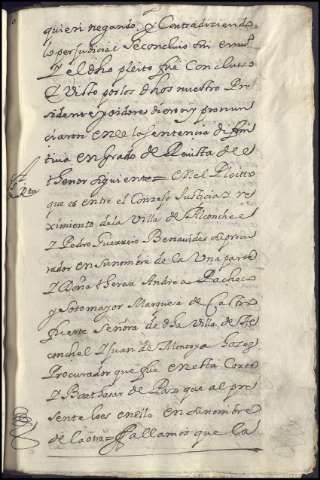 quien negando y Contradiciendo
lo perjudicial Se concluio
Y el dho pleito fué Concluso
Visto por los dhos nuestro Pre
sidente y oidores dieron y pronun
ciaron en el sentencia difini
tiua en grado de Reuista del
thenor siguiente = en el Pleitto
que es entre el Consejo Justicia y re
ximiento de la Villa de Alconchel
Y Pedro Guerrero Benauides su procu
rador en su nombre de la Una parte
Y Doña theresa Andrea Pacheco
y Sotomayor Marquesa de Castro
fuerte Señora de dha Villa de Al
conchel Y Juan de
Procurador que fue en esta Corte
Y Balthasar de Paz que al pre
sente lo es en ello en su nombre
de la otra = fallamos que la